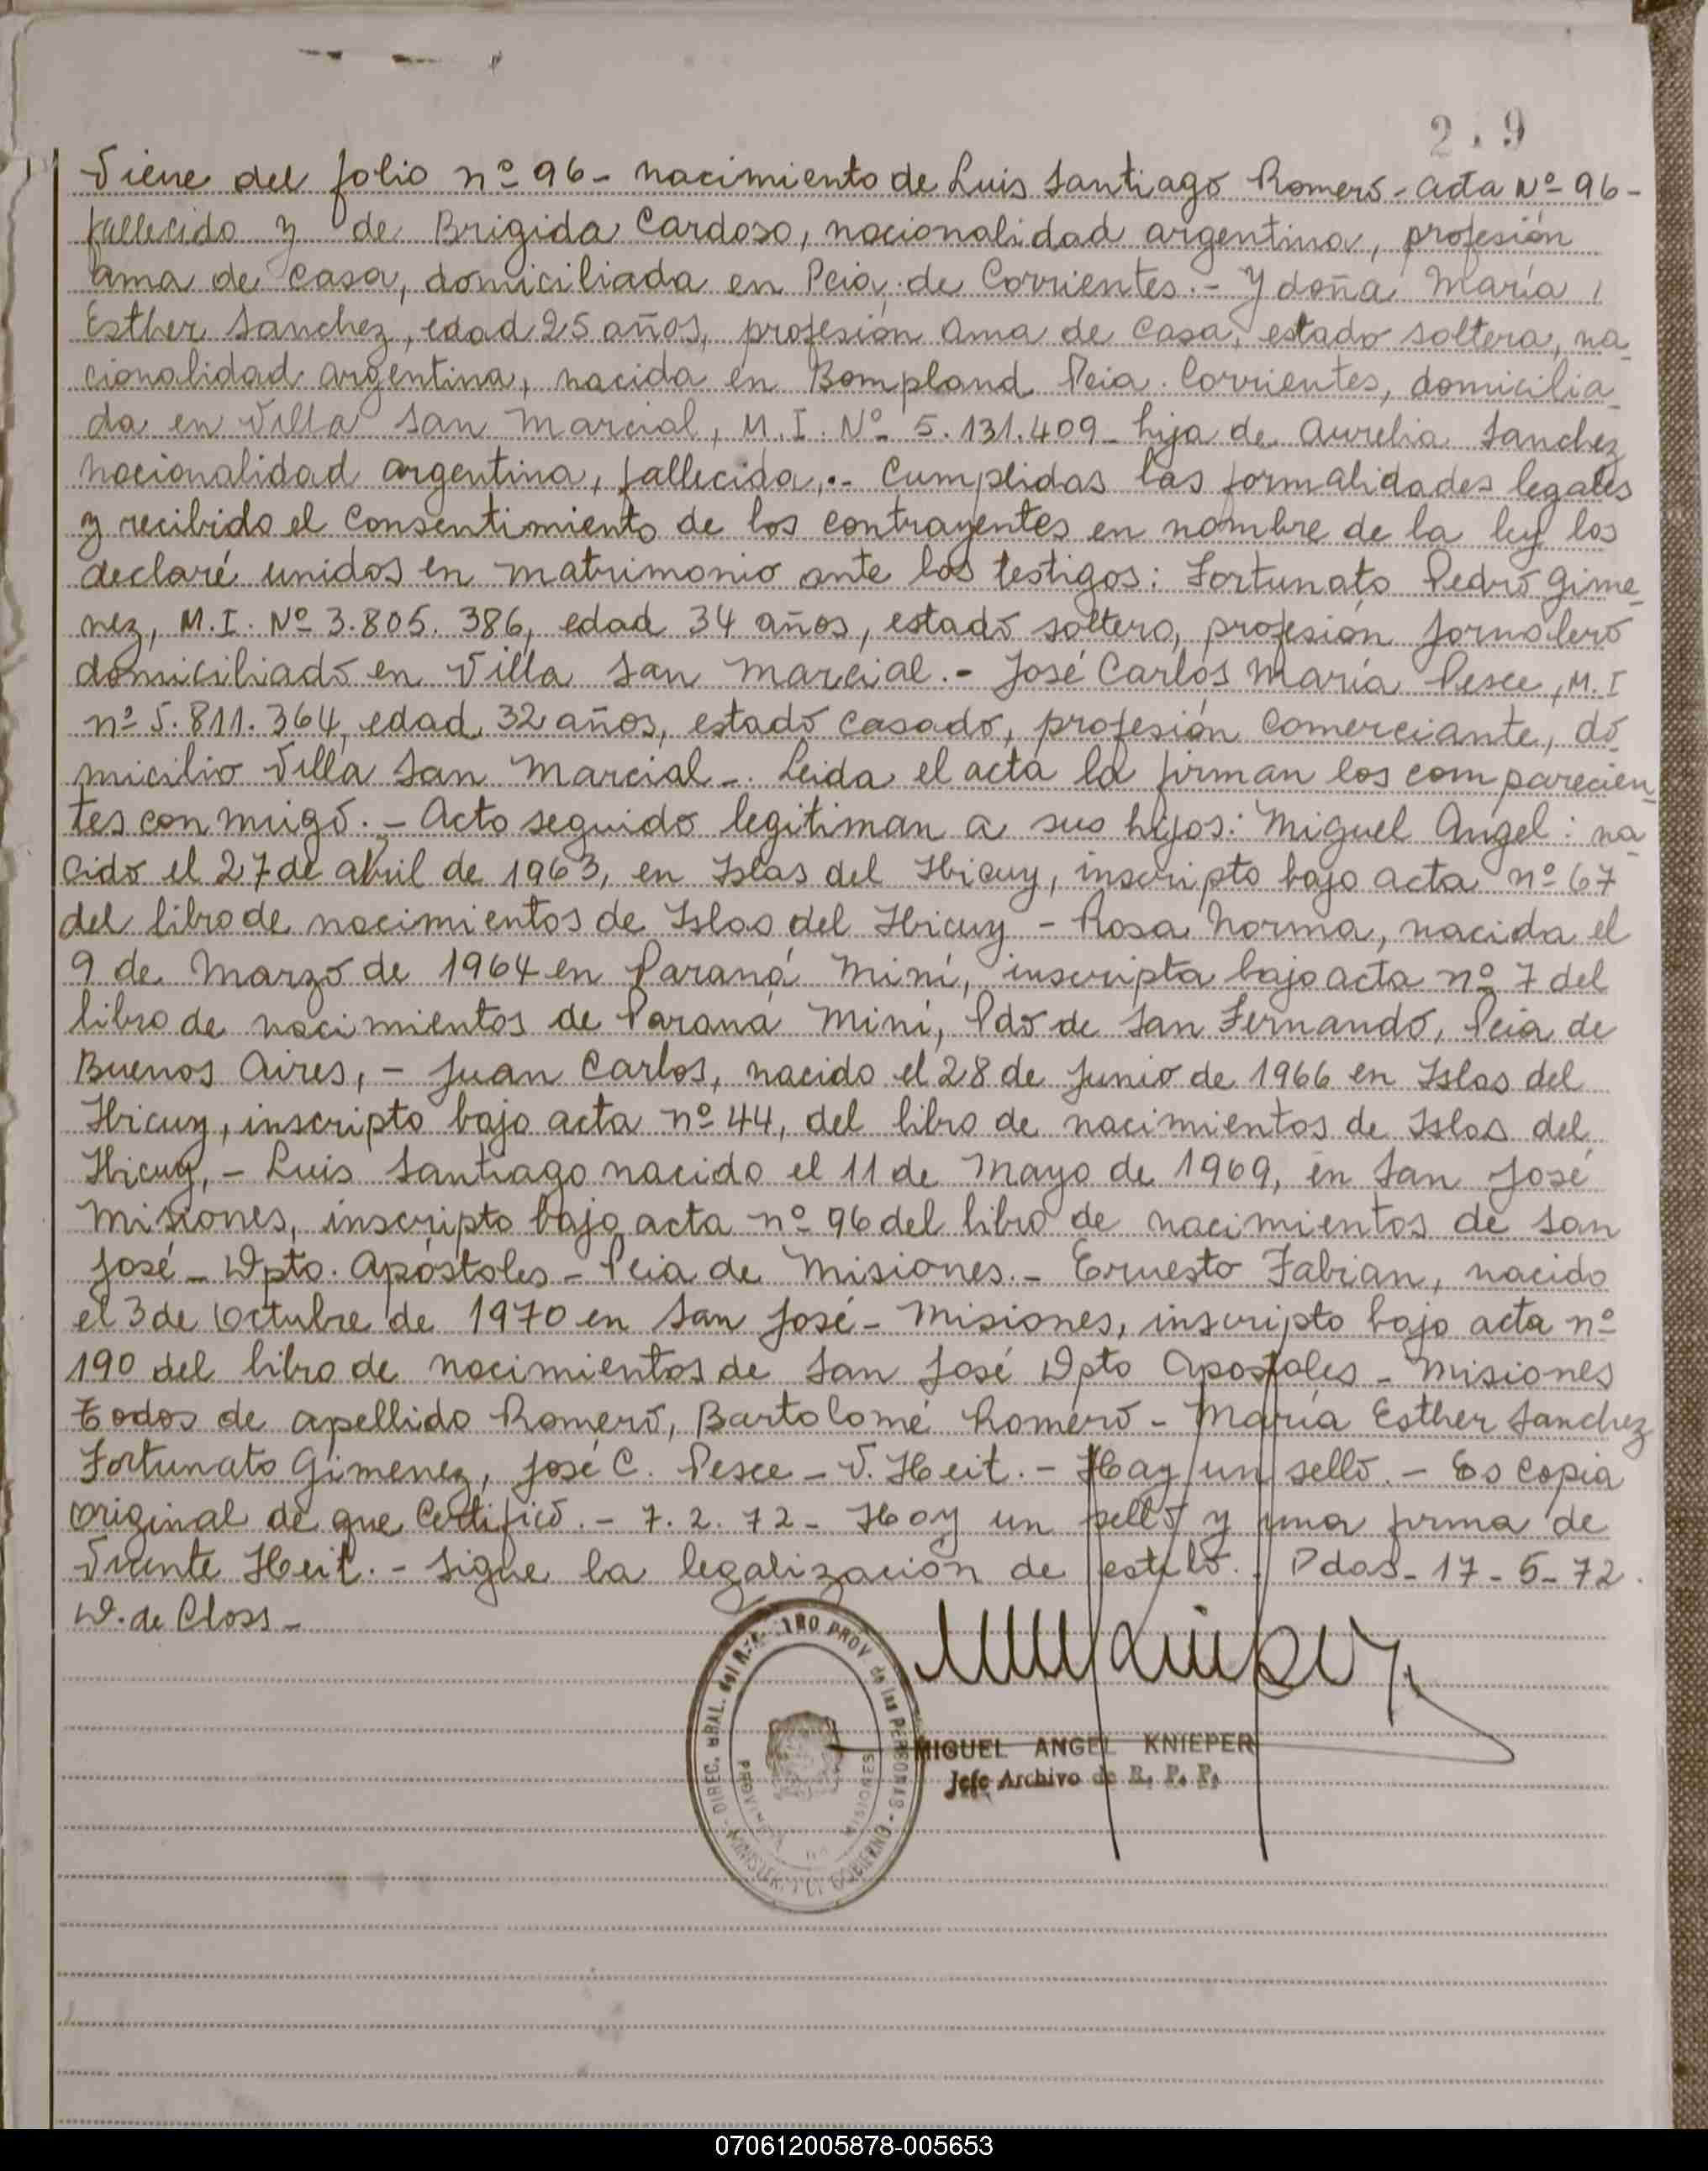 2 . 9
Viene del folio nº 96 - nacimiento de Luis Santiago Romero - acta Nº 96 -
fallecido y de Brigida Cardoso, nacionalidad argentina, profesión
ama de casa, domiciliada en Pcia. de Corrientes. - Y doña María
Esther Sanchez, edad 25 años, profesión ama de casa, estado soltera, na_
cionalidad argentina, nacida en Bompland Pcia. Corrientes, domicilia_
da en Villa San Marcial, M.I. Nº 5.131.409 - hija de Aurelia Sanchez
nacionalidad argentina, fallecida, .- Cumplidas las formalidades legales
y recibido el consentimiento de los contrayentes en nombre de la ley los
declaré unidos en matrimonio ante los testigos: Fortunato Pedro Gime_
nez, M.I. Nº 3.805.386, edad 34 años, estado soltero, profesión jornalero
domiciliado en Villa San Marcial. - José Carlos María Pesce, M.I
nº 5.811.364, edad 32 años, estado casado, profesión comerciante, do_
micilio Villa San Marcial -. Leida el acta la firman los comparecien_
tes con migo. - Acto seguido legitiman a sus hijos: Miguel Angel: na_
cido el 27 de abril de 1963, en Islas del Ibicuy, inscripto bajo acta nº 67
del libro de nacimientos de Islas del Ibicuy - Rosa Norma, nacida el
9 de Marzo de 1964 en Paraná Miní, inscripta bajo acta nº 7 del
libro de nacimientos de Paraná Miní, Pdo de San Fernando, Pcia de
Buenos Aires, - Juan Carlos, nacido el 28 de Junio de 1966 en Islas del
Ibicuy, inscripto bajo acta nº 44, del libro de nacimientos de Islas del
Ibicuy, - Luis Santiago nacido el 11 de Mayo de 1969, en San José
Misiones, inscripto bajo acta nº 96 del libro de nacimientos de San
José - Dpto. Apóstoles - Pcia de Misiones. - Ernesto Fabian, nacido
el 3 de Octubre de 1970 en San José - Misiones, inscripto bajo acta nº
190 del libro de nacimientos de San José Dpto Apostoles - Misiones
Todos de apellido Romero, Bartolomé Romero - María Esther Sanchez
Fortunato Gimenez, José C. Pesce - V. Heit. - Hay un sello. - Es copia
original de que certifico. - 7.2.72 - Hay un sello y una firma de
Vicente Heit. - Sigue la legalización de estilo. Pdas - 17 - 5 - 72.
D. de Closs -
DIREC. GRAL. del REGISTRO PROV de las PERSONAS - MINISTERIO DE GOBIERNO
PROVINCIA DE MISIONES
MIGUEL ANGEL KNIEPER
Jefe Archivo de R. P. P.
070612005878-005653